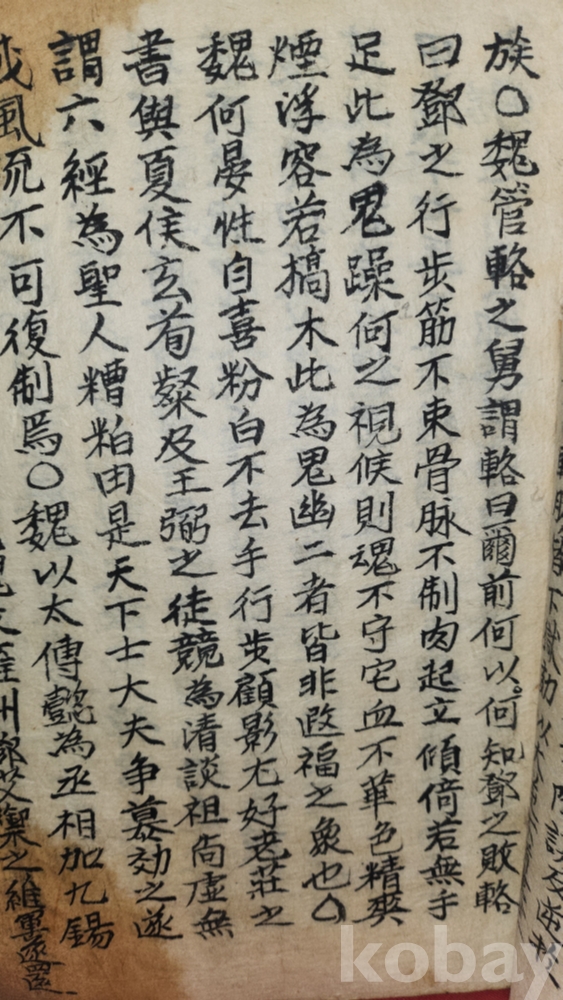 族〇魏管輅之舅謂輅曰爾前何以何知鄧之敗輅
曰鄧之行步筋不束骨脉不制肉起立傾倚若無手
足此為鬼躁何之視候則魂不守宅血不華色精爽
煙浮容若槁木此為鬼幽二者皆非遐福之象也〇
魏何晏性自喜粉白不去手行步顧影尤好老莊之
書與夏侯玄荀粲及王弼之徒競為清談祖尚虛無
謂六經為聖人糟粕由是天下士大夫争慕効之遂
成風流不可復制焉〇魏以太傅懿為丞相加九錫
州鄧艾禦之維軍遂還
kobay